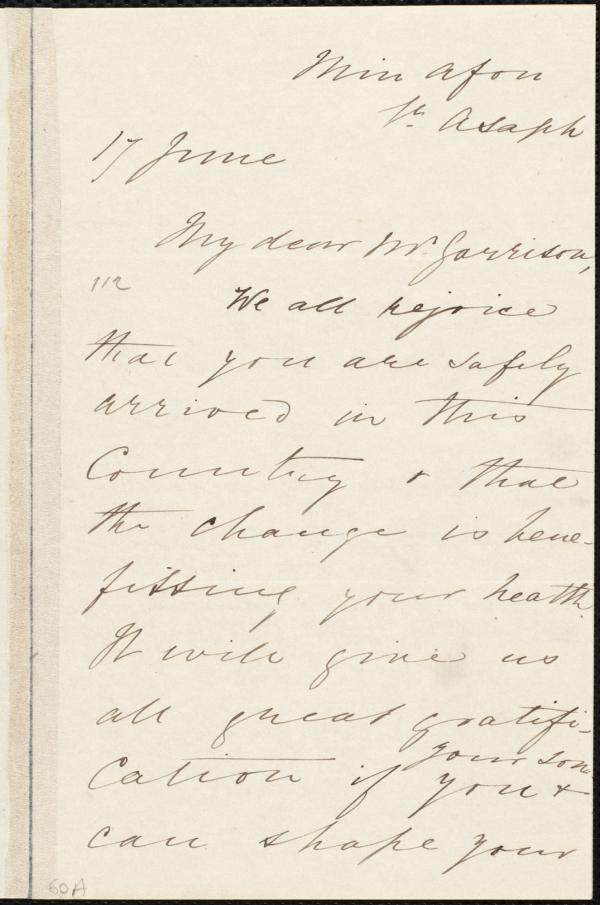 Min Afon
St. Asaph
17 June
My dear Mr. Garrison,
112
We all rejoice
that you are safely
arrived in this
Country & that
the change is bene-
fitting your health.
It will give us
all great gratifi-
your son
cation if you &
can shape your
60A